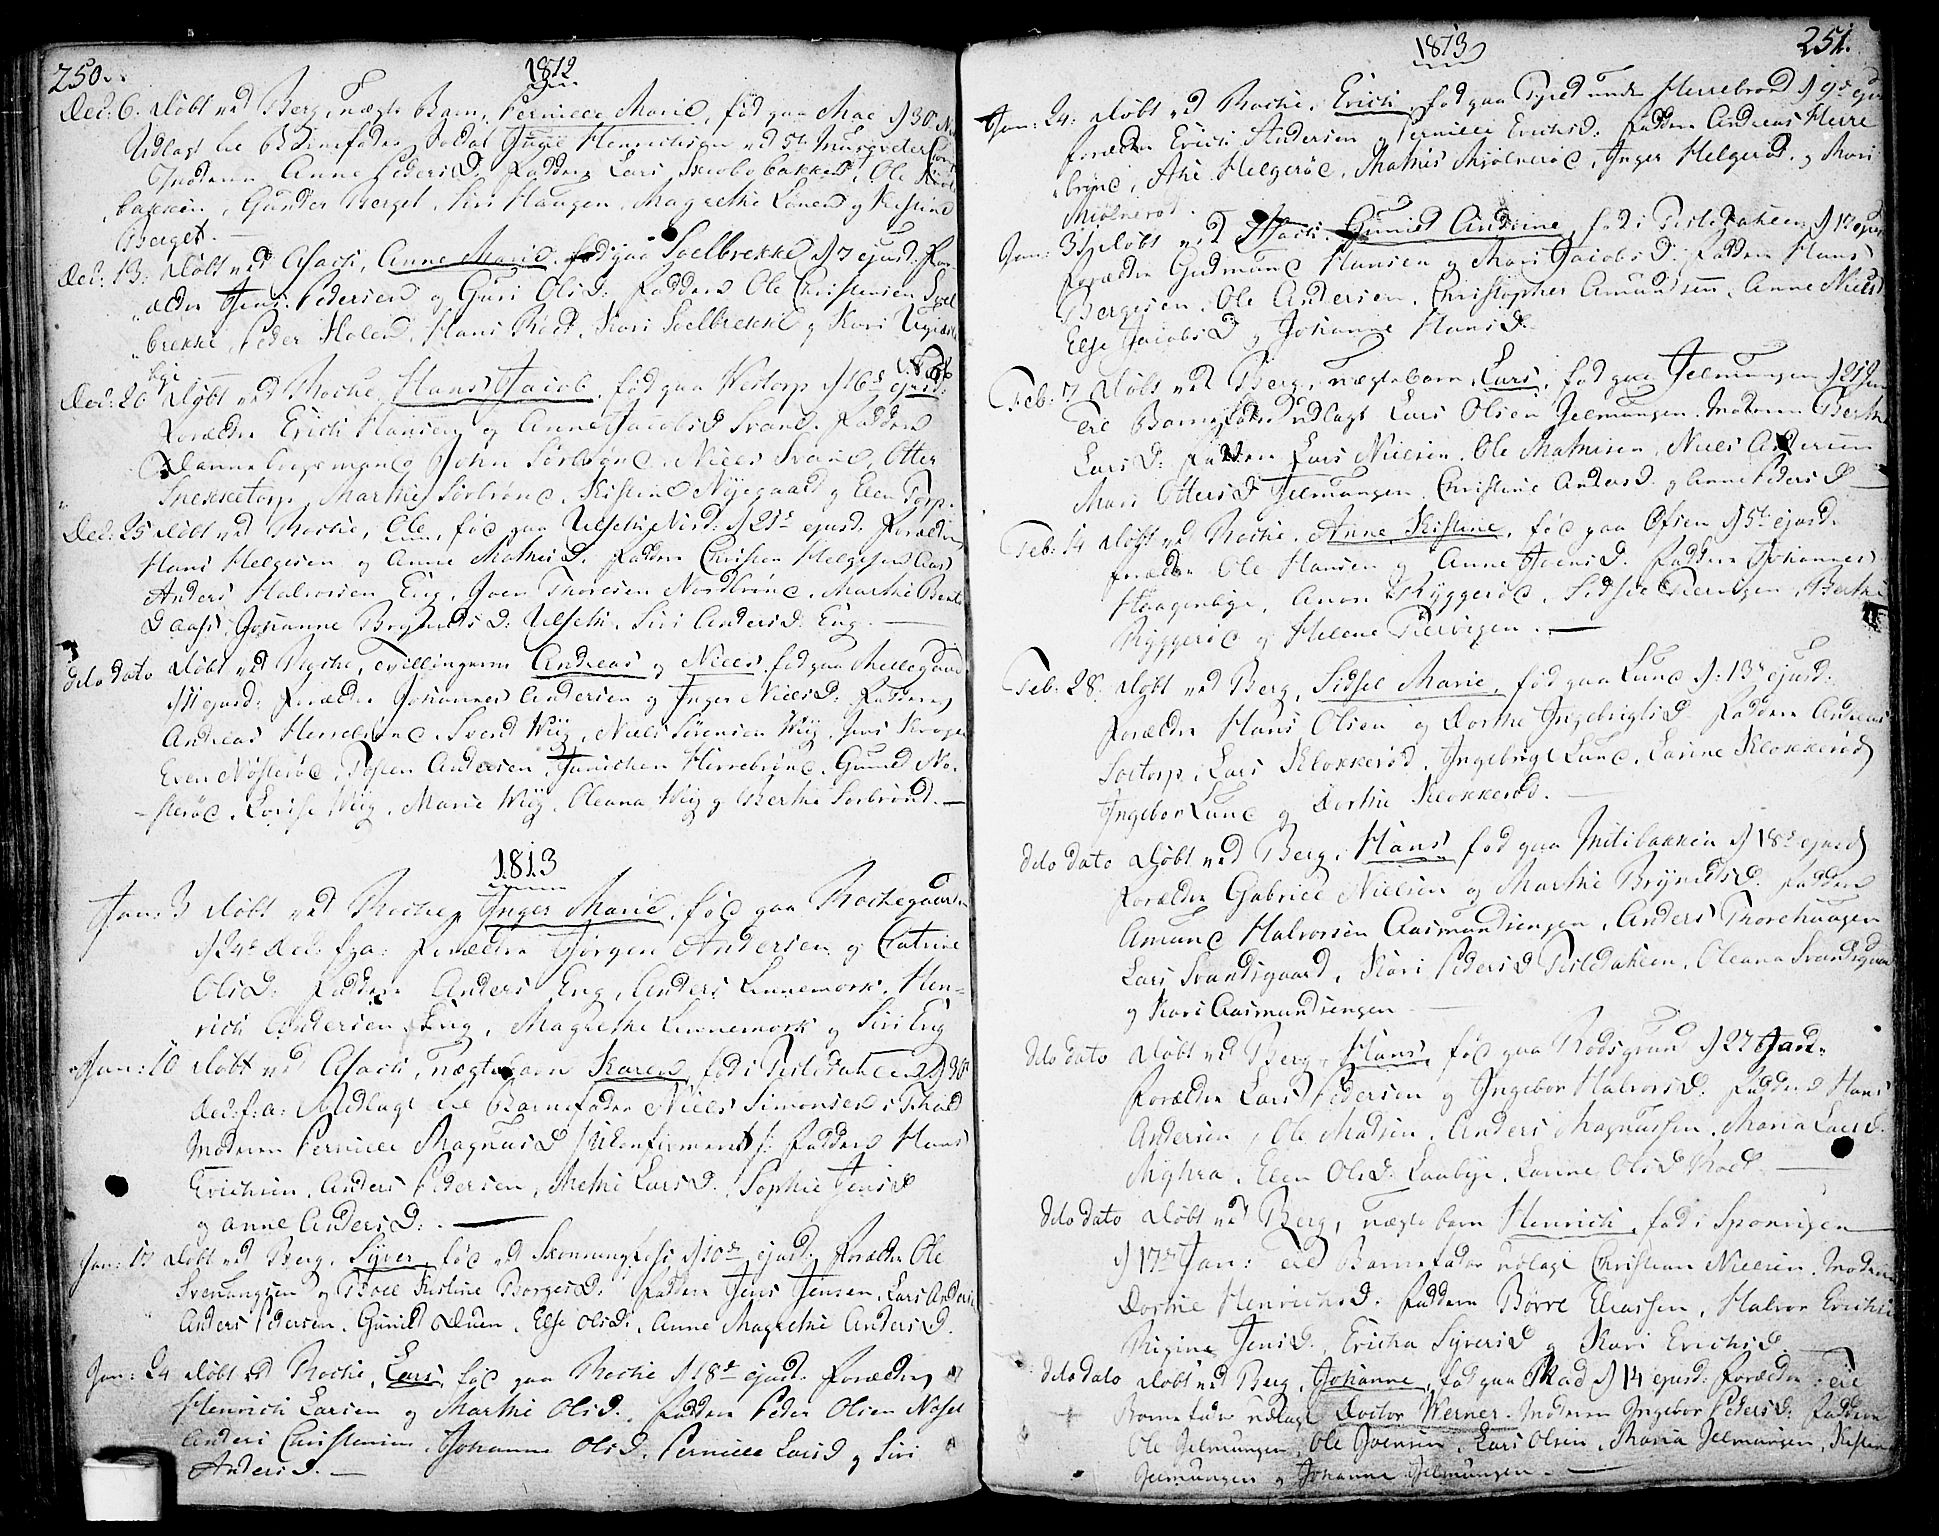 250.
1812
Dec: 6. Døbt ved Berg, uægte Barn, Pernille Marie, fød paa Moe d 30 No
Udlagt til Barnefader Soldat Henrichsen ved 5te
Moderen Anne Pedersd. Faddere Lars Skaabobakken, Ole
bakken, Gunder Berget, Siri Haugen, Magrethe Lunen og Kirstine
Berget.
Dec: 13. Døbt ved Asach, Anne Marie, fød paa Soelbrekke d 7 ejusd. For-
ældre Jens Pedersen og Guri Olsd. Faddere Ole Christensen Soel
brekke, Peder Holen, Hans Röed, Kari Soelbrekke og Kari
bye
Dec: 20 Døbt ved Rocke, Hans Jacob, fød paa Westorp d 16s ejusd:
Forældre Erich Hansen og Anne Jacobsd Svand. Faddere
Dannebrogsmand John Sörbrönd, Niels Svand, Otter
Snekketorp, Marthe Sörbrönd, Kistine Nyegaard og Elen Torp.
Dec: 25 Døbt ved Rocke, Ole, fød paa Ulseth d 21s ejusd. Forældre
Hans Helgesen og Anne Mathisd. Faddere Christen Helgesen Aas
Anders Halvorsen Eng, Joen Thoresen Nordbrönd, Marthe Bents
D Aass, Johanne Brynildsd. Ulseth, Siri Andersd. Eng.
dito dato Døbt ved Rocke, tvillingerne Andreas og Niels fød paa
d 11 ejusd: Forældre Johannes Andersen og Inger Nielsd: Faddere
Andreas Herrebrönd, Svend Wiig, Niels Sörensen Wiig, Jens
Even Nösteröd, Tosten Andersen, Herrebrönd, Gunild Nö-
steröd, Lovise Wiig, Marie Wiig, Oleana Wiig og Berthe Sörbrönd.
1813
Jan: 3 Døbt ved Rocke, Inger Marie, fød paa Rockegaarden
d 24s Dec: f:a: Forældre Jörgen Andersen og Catrine
Olsd. Faddere Anders Eng, Anders Linnemork, Hen-
rich Andersen Eng, Magrethe Linnemork og Siri Eng
Jan: 10 Døbt ved Asach, uægtebarn Karen, fød i Tistedahlen d 30
Dec: f:a: Udlagt til Barnefader Niels Simonsen i
Moderen Pernille Magnusd /: ukonfirmert :/ Faddere Hans
Erichsen, Anders Pedersen, Marthe Larsd., Sophie Jensd
og Anne Andersd:
Jan: 17 Døbt ved Berg, Syver, fød ved d 10de ejusd: Forældre Ole
Svenungsen og Boel Kistine Borgesd. Faddere Jens Jensen, Lars Anders
Anders Pedersen, Gunild Duen, Else Olsd., Anne Magrethe Andersd.
Jan: 24 Døbt ved Rocke, Lars, fød paa Rocke d 18de ejusd: Forældre
Henrich Larsen og Marthe Olsd. Faddere Peder Olsen
Anders Christensen, Johanne Olsd., Pernille Larsd og Siri
Andersd.
251.
1813
Jan: 24: Døbt ved Rocke, Erich, fød paa under Herrebrönd d 9s ejus
forældre Erich Andersen og Pernille Erichsd: Faddere Andreas Herre
brönd, Ahe Helgeröd, Mathis Mjölneröd, Inger Helgeröd, og Kari
Mjölneröd.
Jan: 31 Døbt ved Asach, Gunild Andrine, fød i Tistedahlen d 17 ejus
forældre Gudmund Hansen og Mari Jacobsd. Faddere Hans
Bergesen, Ole Andersen, Christopher Amundsen, Anne Nielsd
Else Jacobsd og Johanne Hansd.
Feb: 7 Døbt ved Berg, uægtebarn Lars, fød paa Jelmungen d 21 Jan
Til Barnefader udlagt Lars Olsen Jelmungen. Moderen Berthe
Larsd: Faddere Lars Nielsen, Ole Mathisen, Niels Andersen
Mari Ottersd Jelmungen, Christine Andersd. og Anne Pedersd
Feb: 14 Døbt ved Rocke, Anne Kistine, fød paa d 5te ejusd.
forældre Ole Hansen og Anne Joensd. Faddere Johannes
Haagenbye, Anon Ryggeröd, Sidsel, Berthe
Ryggeröd og Helene.
Feb: 28. Døbt ved Berg, Sidsel Marie, fød paa Lund d: 13s ejusd:
Forældre Hans Olsen og Dorthe Ingebrigtsd Faddere Andreas
Soetorp, Lars Klokkeröd, Ingebrigt Lund, Larine Klokkeröd
Ingebor Lund og Dorthe Klokkeröd.
dito dato Døbt ved Berg, Hans fød paa d 18s ejusd
Forældre Gabriel Nielsen og Marthe Brynildsd. Faddere
Amund Halvorsen Aasmundsengen, Anders Thorehaugen
Lars Svandsgaard, Kari Pedersd Tistedahlen, Oleana Svandsgaard
og Kari Aasmundsengen
dito dato Døbt ved Berg, Hans, fød paa Rödsgrund d 27 Jan:
Forældre Lars Pedersen og Ingebor Halvorsd. Faddere Hans
Andersen, Ole Madsen, Anders Magnussen, Maria Larsd.
Myhra, Elen Olsd. Laabye, Lanne Olsd Röed
dito dato Døbt ved Berg, uægte barn Henrich, fød i Sponvigen
d 17de Jan: til Barnefader udlagt Christian Nielsen. Moderen
Dorthe Henrichsd. Faddere Börre Eliassen, Halvor Erichse
Regine Jensd., Ericha Syversd og Kari Erichsd.
dito dato Døbt ved Berg, Johanne, fød paa d 14 ejusd: forældre: Til
Barnefader udlagt Doctor Werner. Moderen Ingebor Pedersd: Faddere
Ole Jelmungen, Ole Joensen, Lars Olsen, Maria Jelmungen, Kistine
Jelmungen og Johanne Jelmungen.